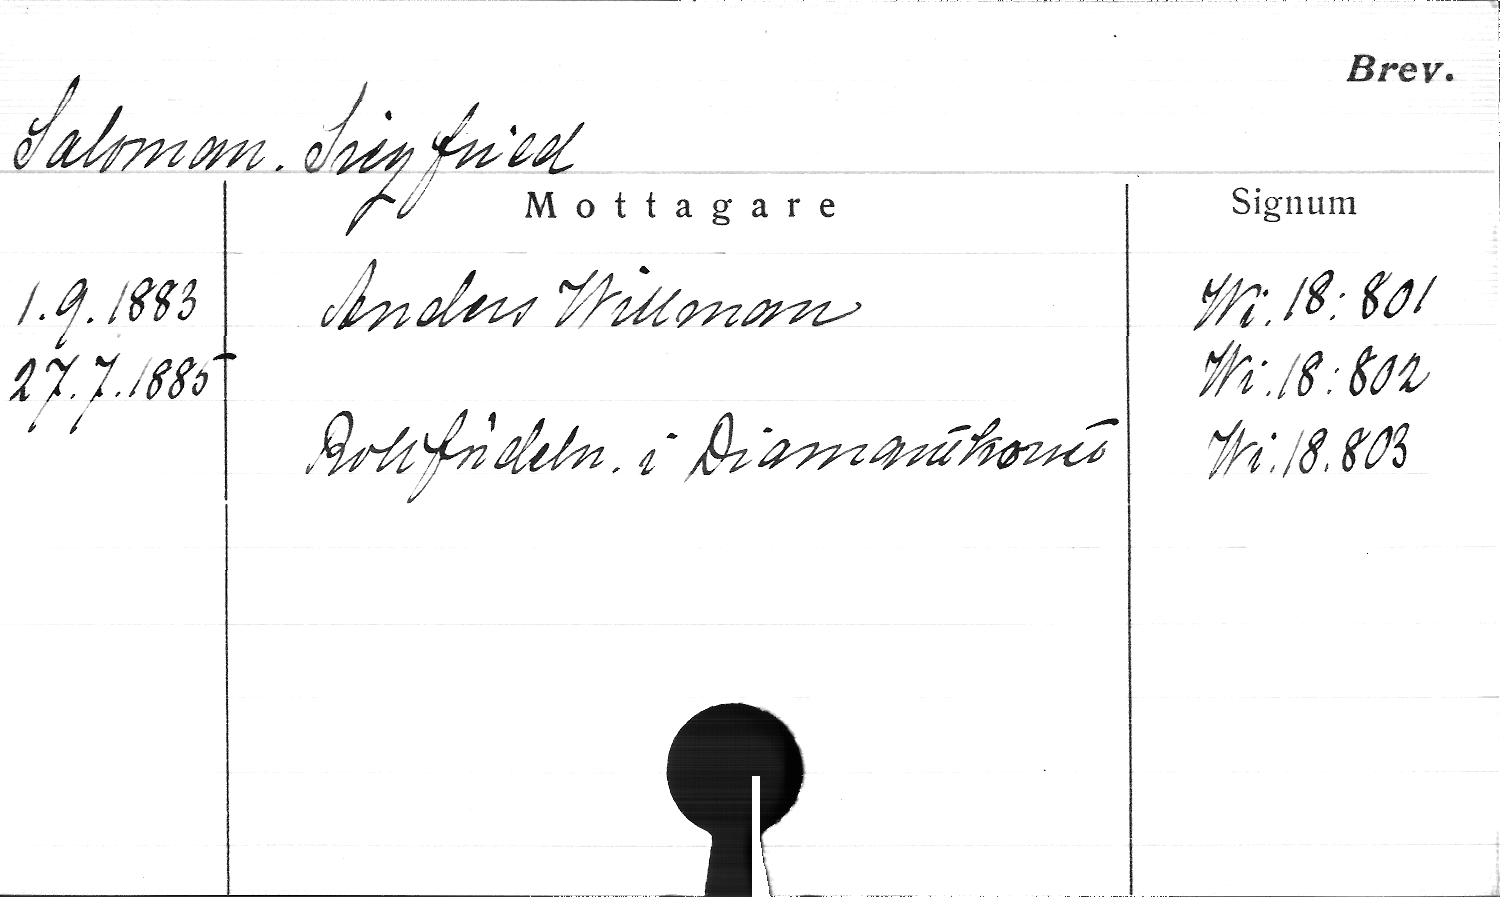 Brev.
Saloman. Siegfried
Mottagare Signum
1.9.1883 Anders Willman Wi.18:801
27.7.1885 Wi.18:802
Rollfördeln. i Diamantkorset Wi.18.803